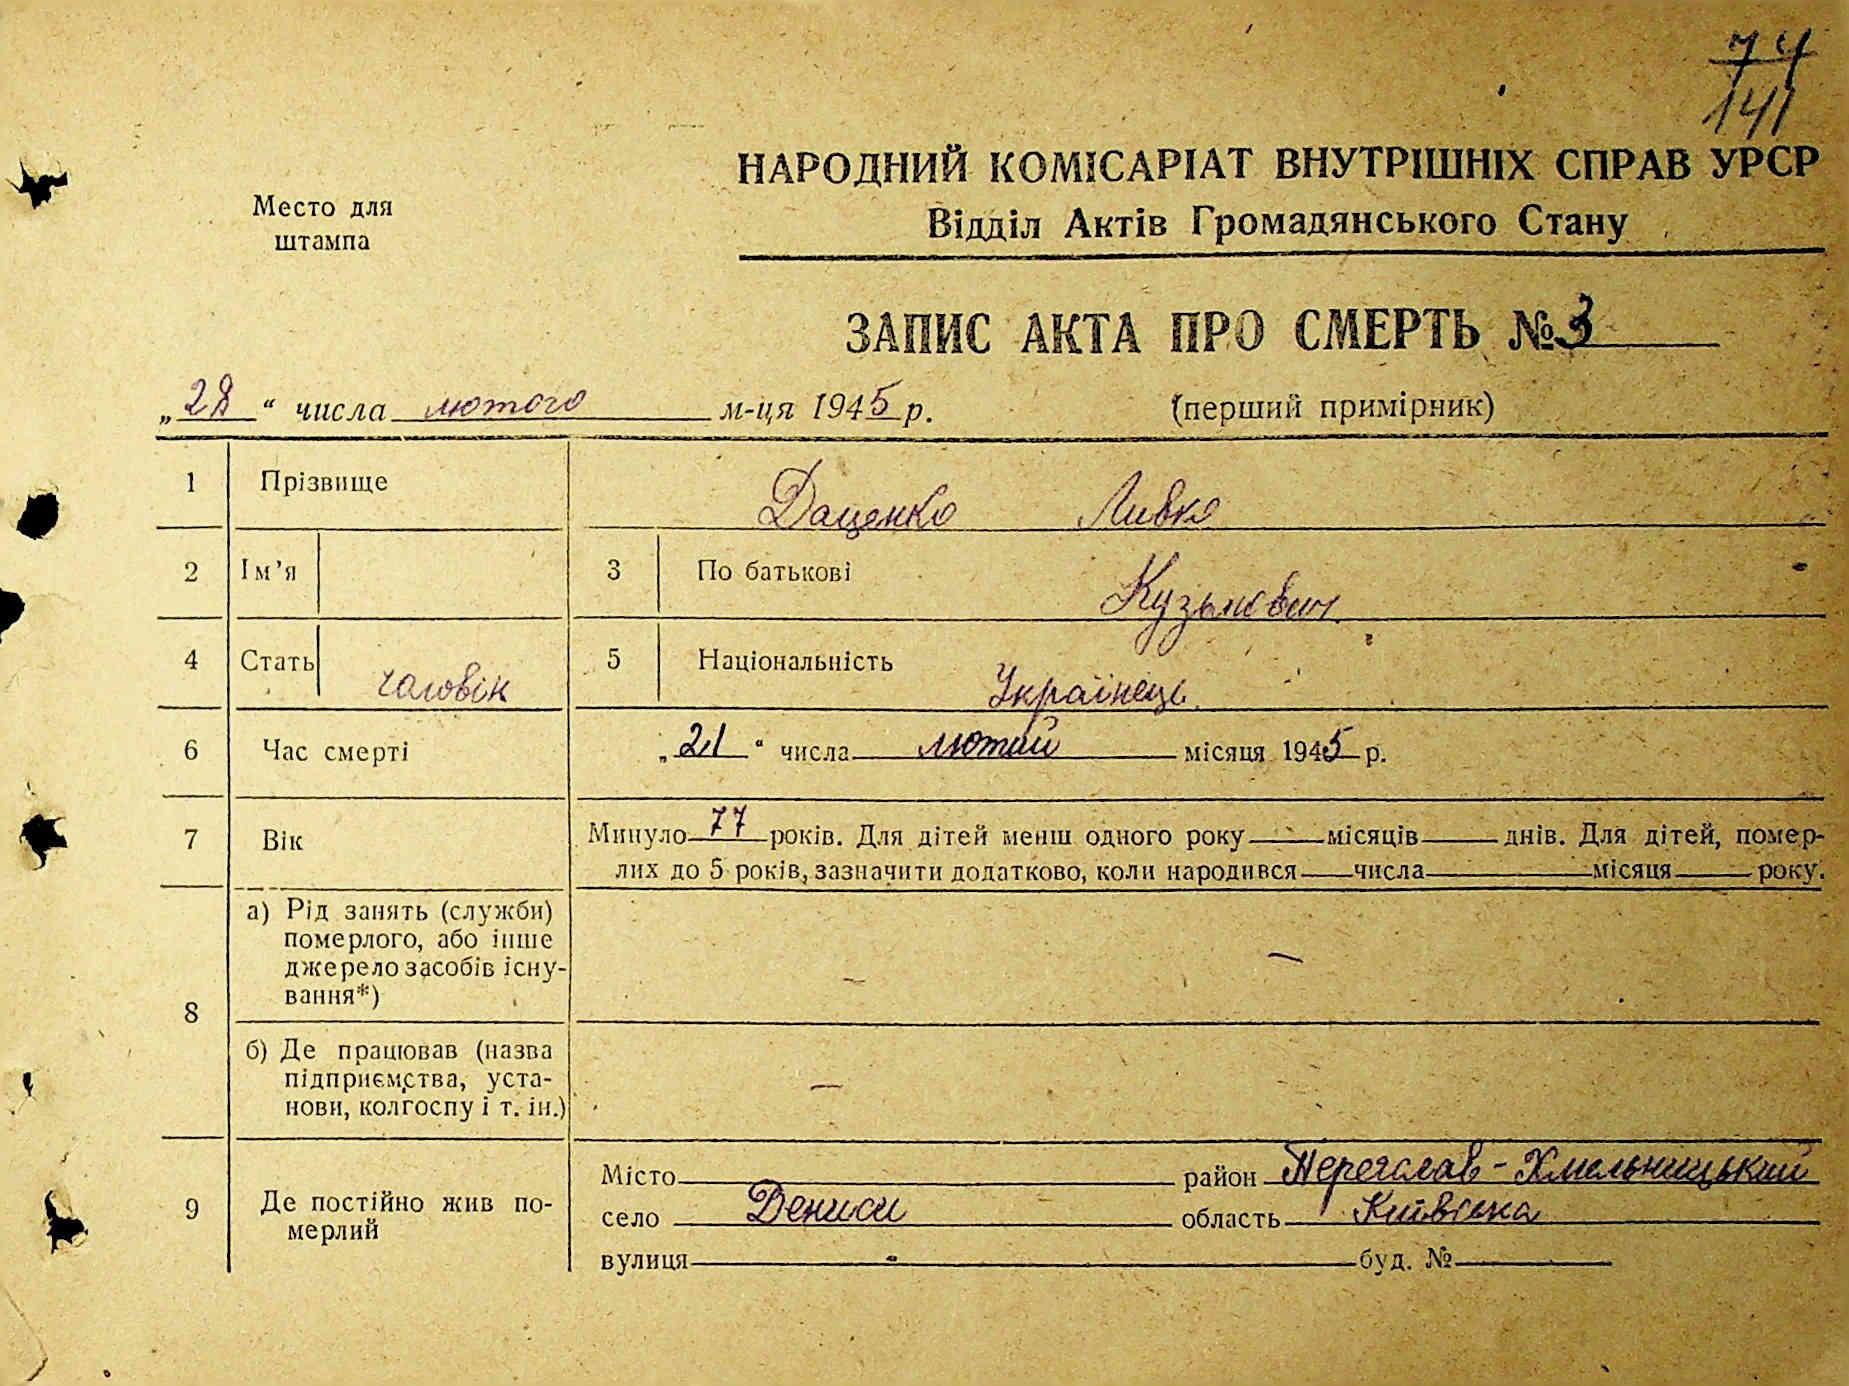 74
141
НАРОДНИЙ КОМІСАРІАТ ВНУТРІШНІХ СПРАВ УРСР
Відділ Актів Громадянського Стану
Место для
штампа
ЗАПИС АКТА ПРО СМЕРТЬ № 3
„28“ числа лютого м-ця 1945 р. (перший примірник)
1 Прізвище ДаценкоЛивко
2 Ім’я 3 По батькові Кузьмович
4 Стать чоловік 5 Національність Українець
6 Час смерті „21“ числа лютий місяця 1945 р.
7 Вік Минуло 77 років. Для дітей менш одного року — місяців — днів. Для дітей, помер-
лих до 5 років, зазначити додатково, коли народився — числа — місяця — року.
8 а) Рід занять (служби)
померлого, або інше
джерело засобів існу-
вання*)
— —
б) Де працював (назва
підприємства, уста-
нови, колгоспу і т. ін.)
—
9 Де постійно жив по-
мерлий
Місто район Переяслав-Хмельницький
село Дениси область Київська
вулиця - буд. №